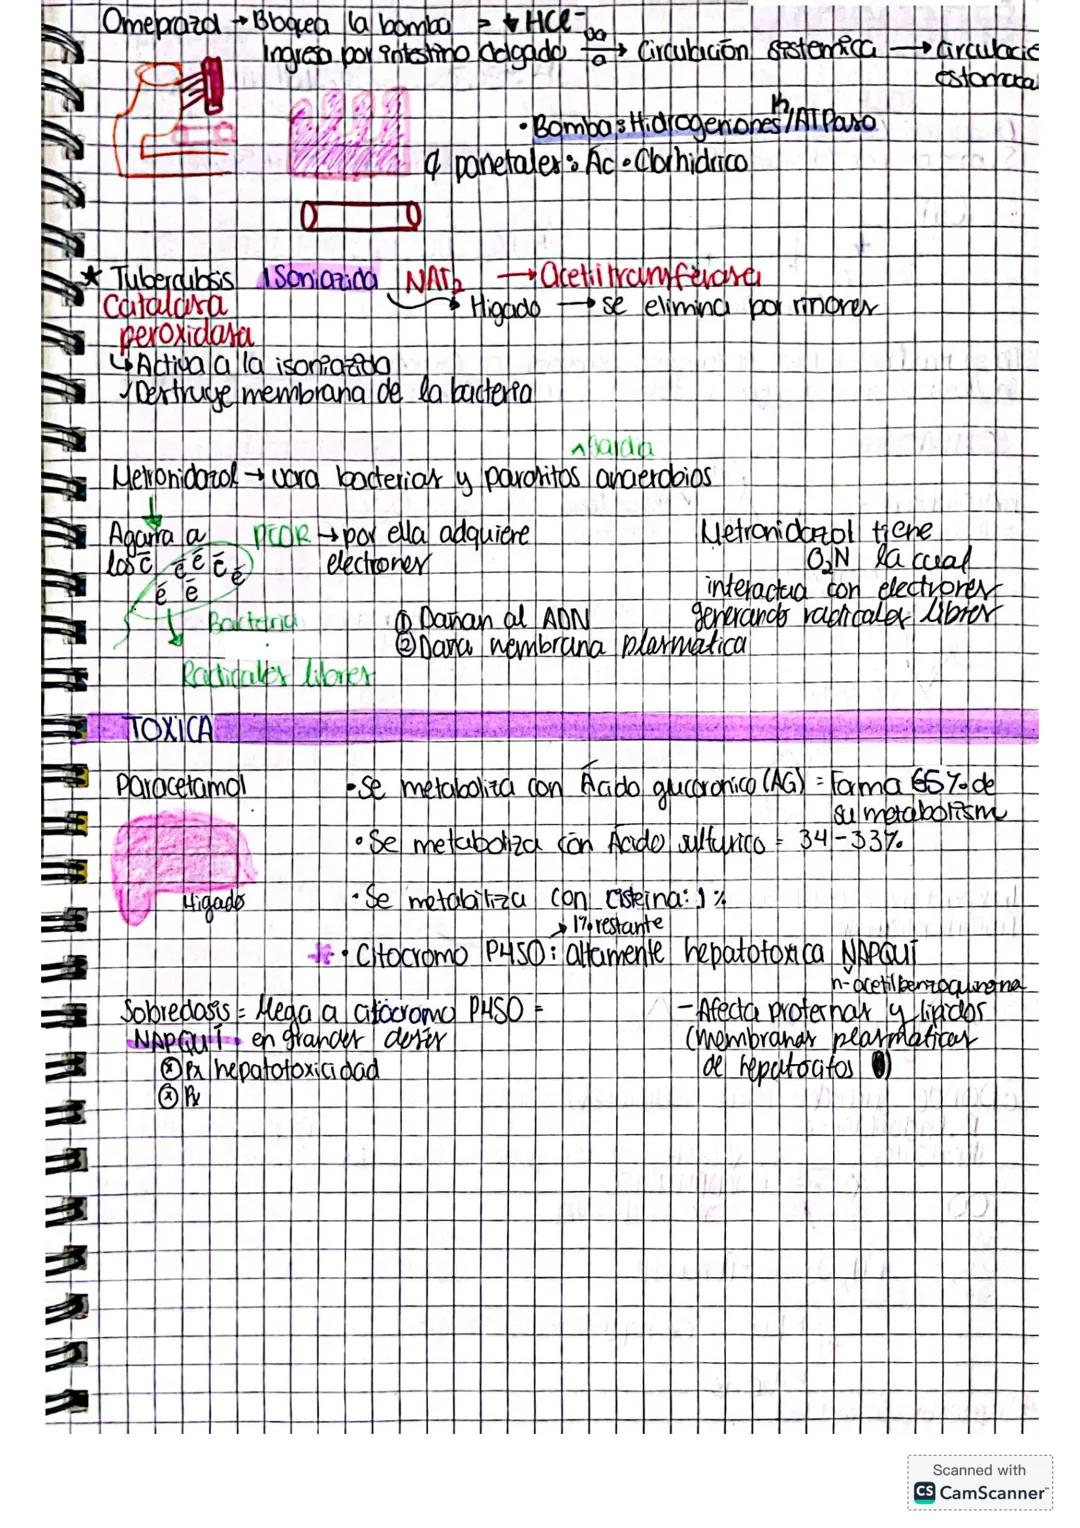 Omeprazol → Bloquea la bomba = ↓ HCl-
Ingresa por intestino delgado va a → Circulación sistemica → circulació
estomaca
• Bomba: Hidrogeniones/ATPasa
¢ parietales: Ac. Clorhidrico
★ Tuberculosis Isoniazida NAT2 → Acetiltransferasa
Catalasa → Higado → se elimina por riñores
peroxidasa
↳ Activa a la isoniazida
Destruye membrana de la bacteria
Metronidazol → para bacterias y parasitos anaerobios
Agarra a PFOR → por ella adquiere
los ē electrones
ē ē ē ē ē ē
Metronidazol tiene
O₂N la cual
interactua con electrores
generando radicales libres
Bacteria
① Dañan al ADN
② Daña membrana plasmatica
Radicales libres
TOXICA
Paracetamol
• Se metaboliza con Ácido glucoronico (AG) = Forma 65% de
su metabolism
• Se metaboliza con Acido sulfurico = 34-33%
Higado
• Se metabiliza con cisteina: 1%
→ 1% restante
• Citocromo P450: altamente hepatotoxica NAPQUI
n-acetilbenzoquinona
Sobredosis = llega a citocromo P450 =
NAPQUI en grandes dosis
- Afecta proteinas y lipidos
(membranas plasmaticas
de hepatocitos)
Ⓧ Px hepatotoxicidad
Ⓧ Px
Scanned with
CS CamScanner